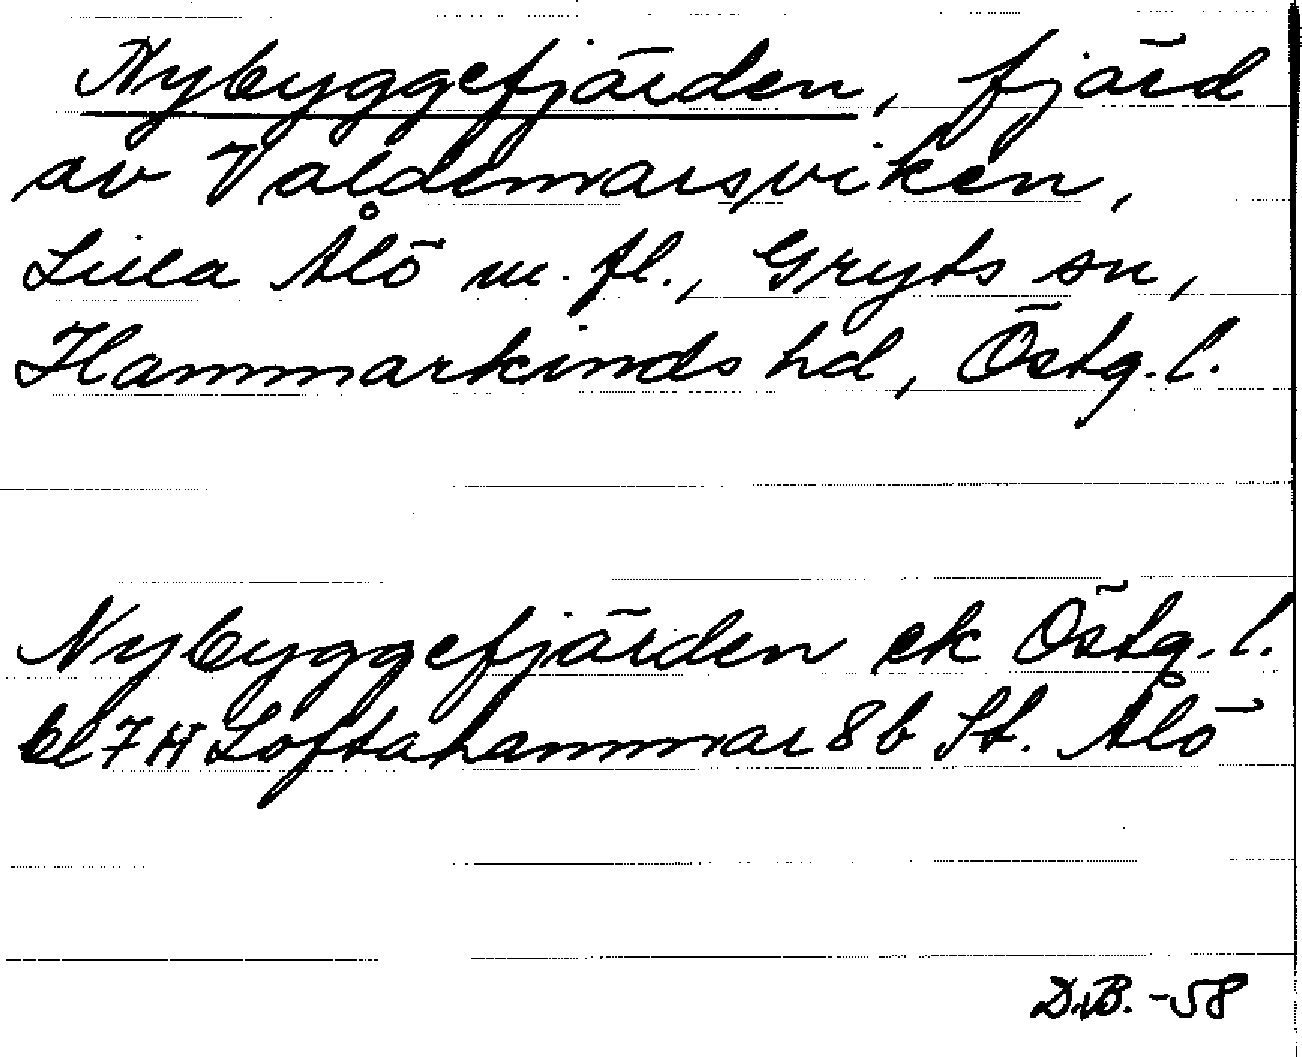 Nybyggefjärden, fjärd
av Valdemarsviken,
Lilla Ålö m. fl., Gryts sn,
Hammarkinds hd, Östg. l.
Nybyggefjärden ek Östg. l.
bl 7 H Loftahammar 8b St. Ålö
D.B. -58